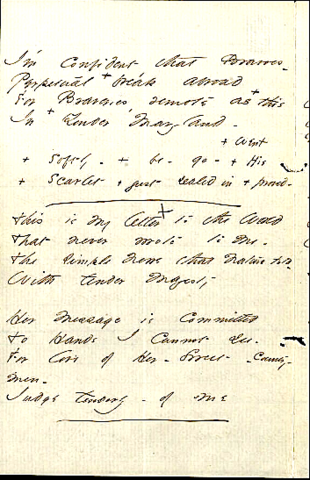 I'm confident that Bravoes -
Perpetual + break abroad
For Braveries, remote as + this
In + Yonder Maryland -
+ went
+ softly - + be - go - + His
+ Scarlet + just sealed in +
This is my letter + to the World
That never wrote to Me -
The simple News that Nature told -
With tender Majesty
Her Message is Committed
To Hands I cannot see -
For love of Her - Sweet - country
men -
Judge tenderly - of Me